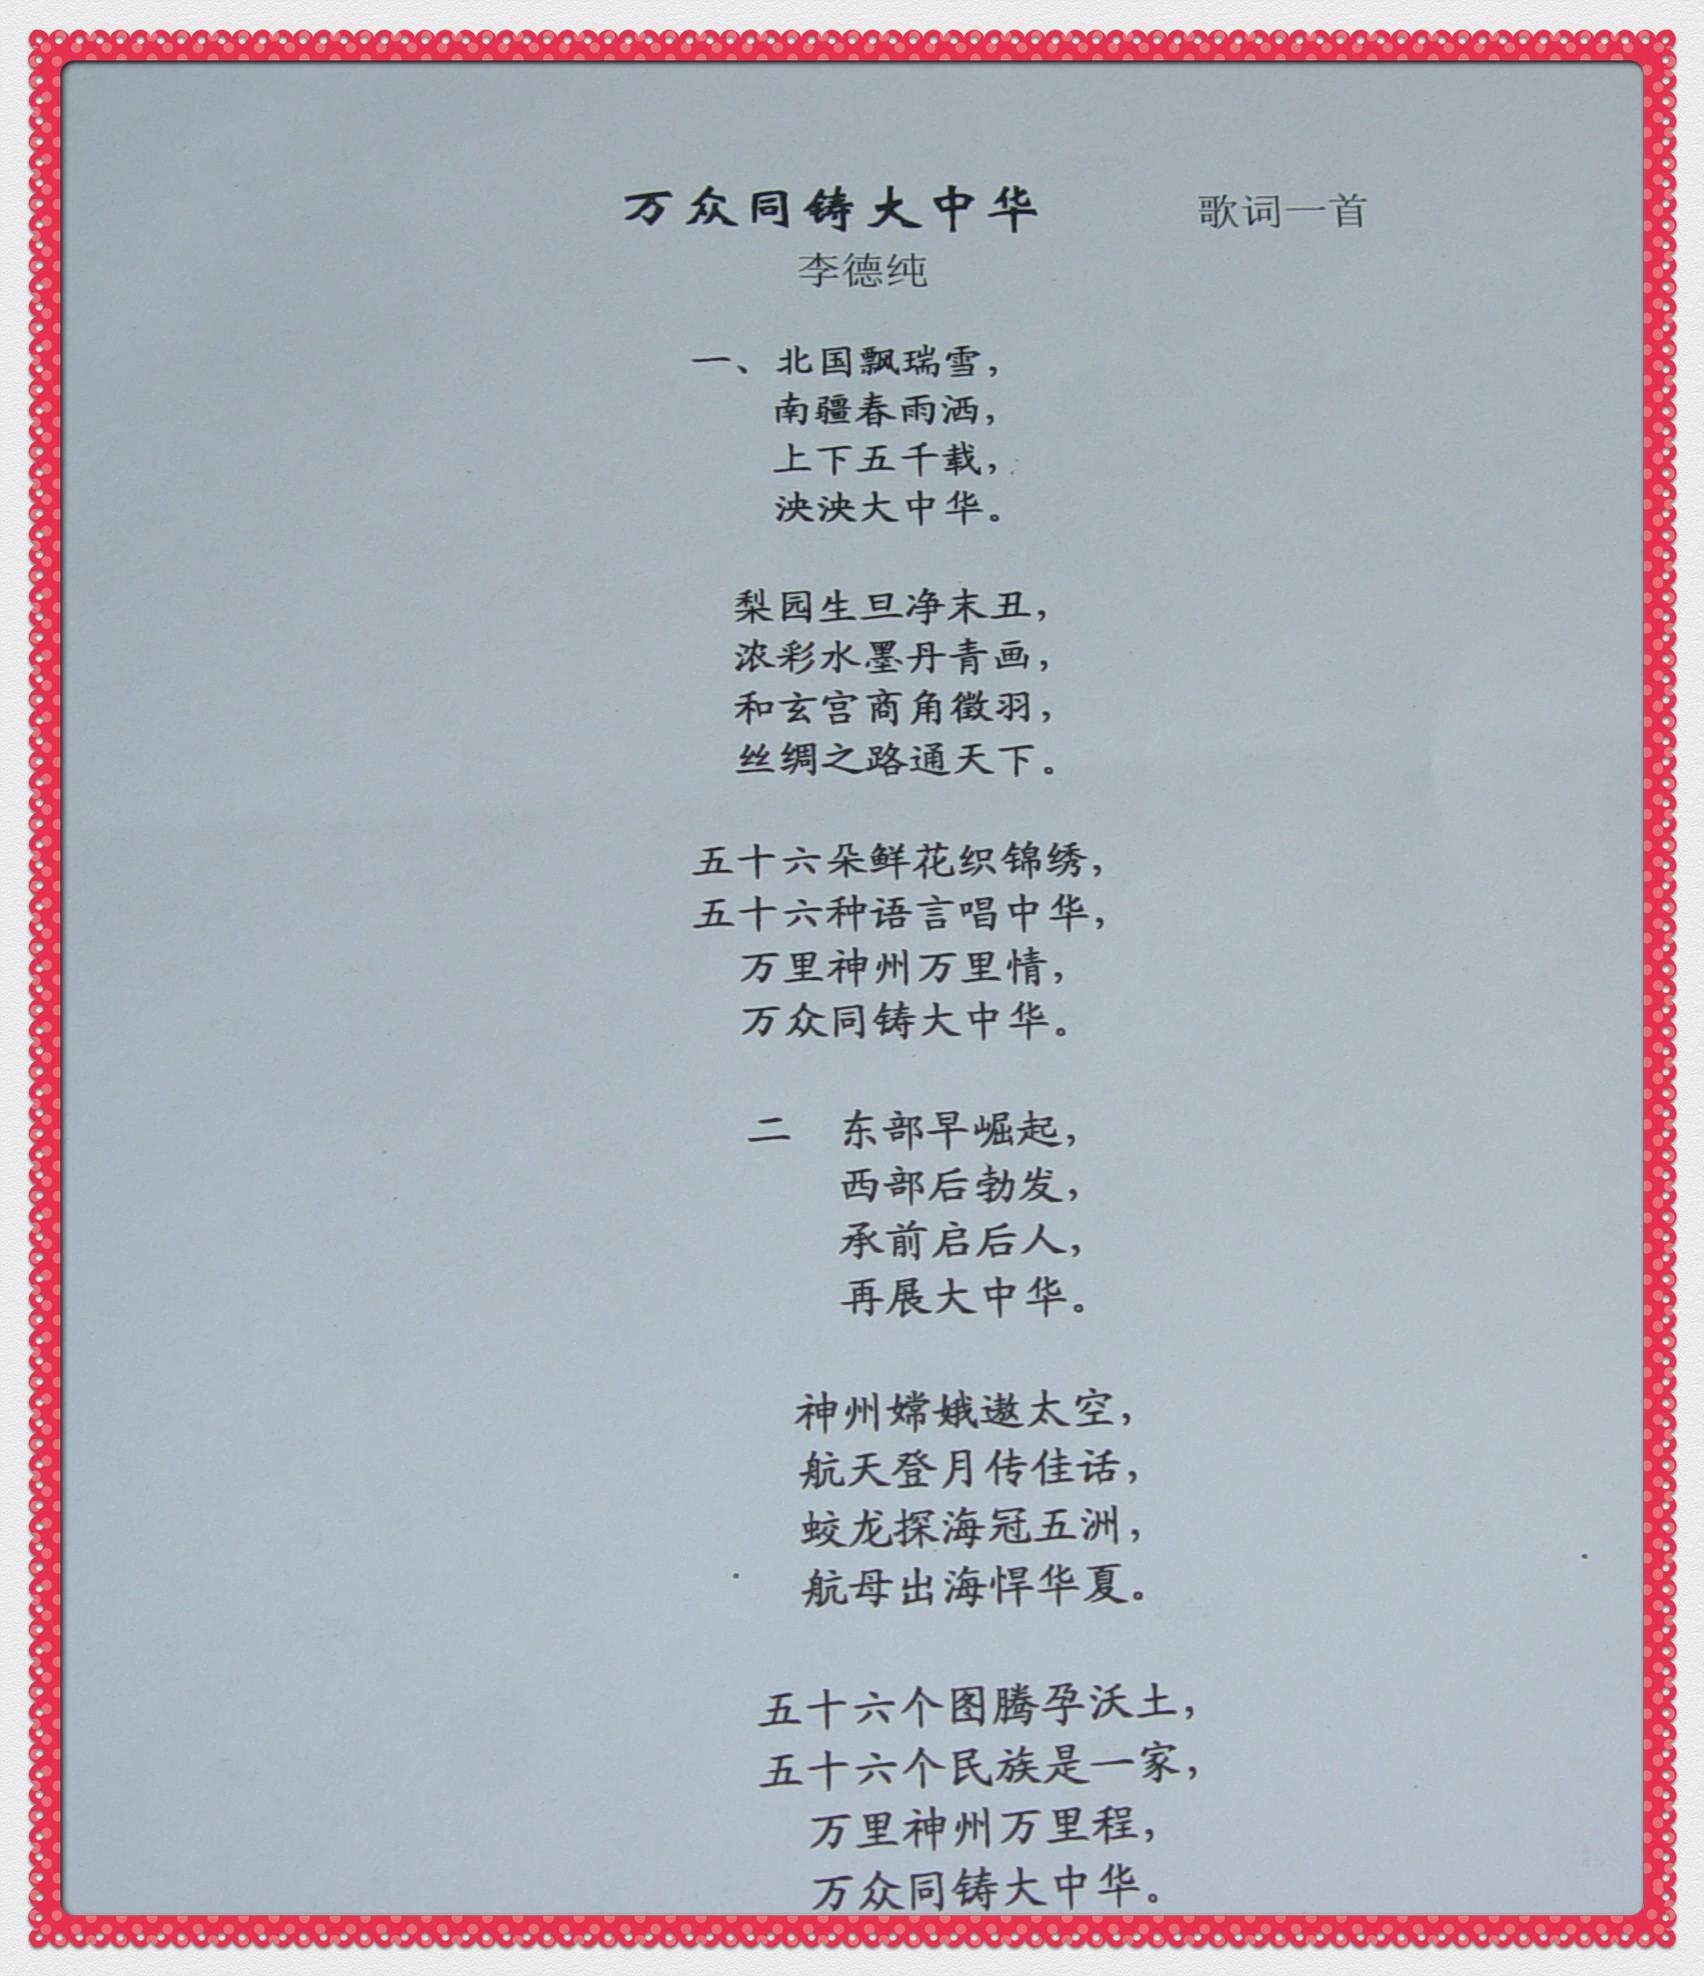 万众同铸大中华 歌词一首
李德纯
一、北国飘瑞雪，
南疆春雨洒，
上下五千载，
泱泱大中华。
梨园生旦净末丑，
浓彩水墨丹青画，
和玄宫商角徵羽，
丝绸之路通天下。
五十六朵鲜花织锦绣，
五十六种语言唱中华，
万里神州万里情，
万众同铸大中华。
二 东部早崛起，
西部后勃发，
承前启后人，
再展大中华。
神州嫦娥遨太空，
航天登月传佳话，
蛟龙探海冠五洲，
航母出海悍华夏。
五十六个图腾孕沃土，
五十六个民族是一家，
万里神州万里程，
万众同铸大中华。